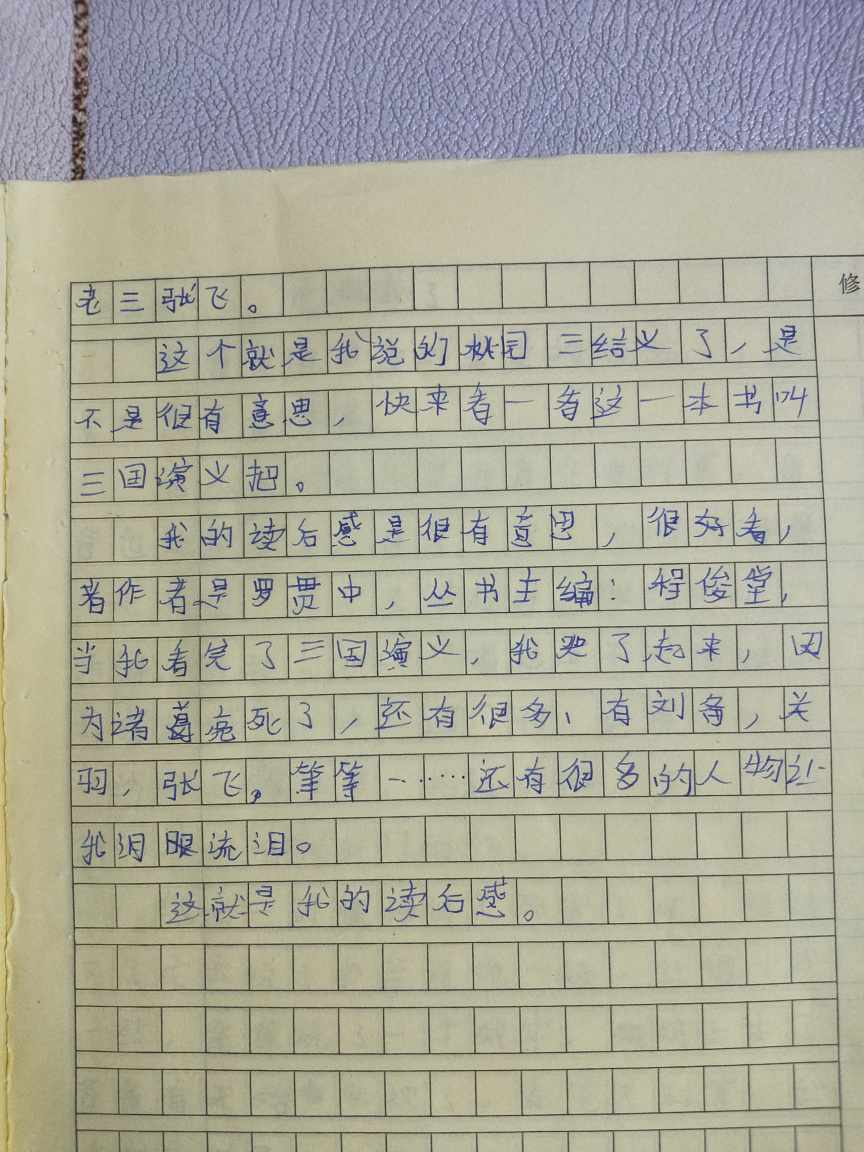 老三张飞。
修
这个就是我说的桃园三结义了，是
不是很有意思，快来看一看这一本书叫
三国演义把。
我的读后感是很有意思，很好看，
著作者是罗贯中，丛书主编：程俊堂，
当我看完了三国演义，我哭了起来，因
为诸葛亮死了，还有很多、有刘备，关
羽，张飞。等等……还有很多的人物让
我泪眼流泪。
这就是我的读后感。